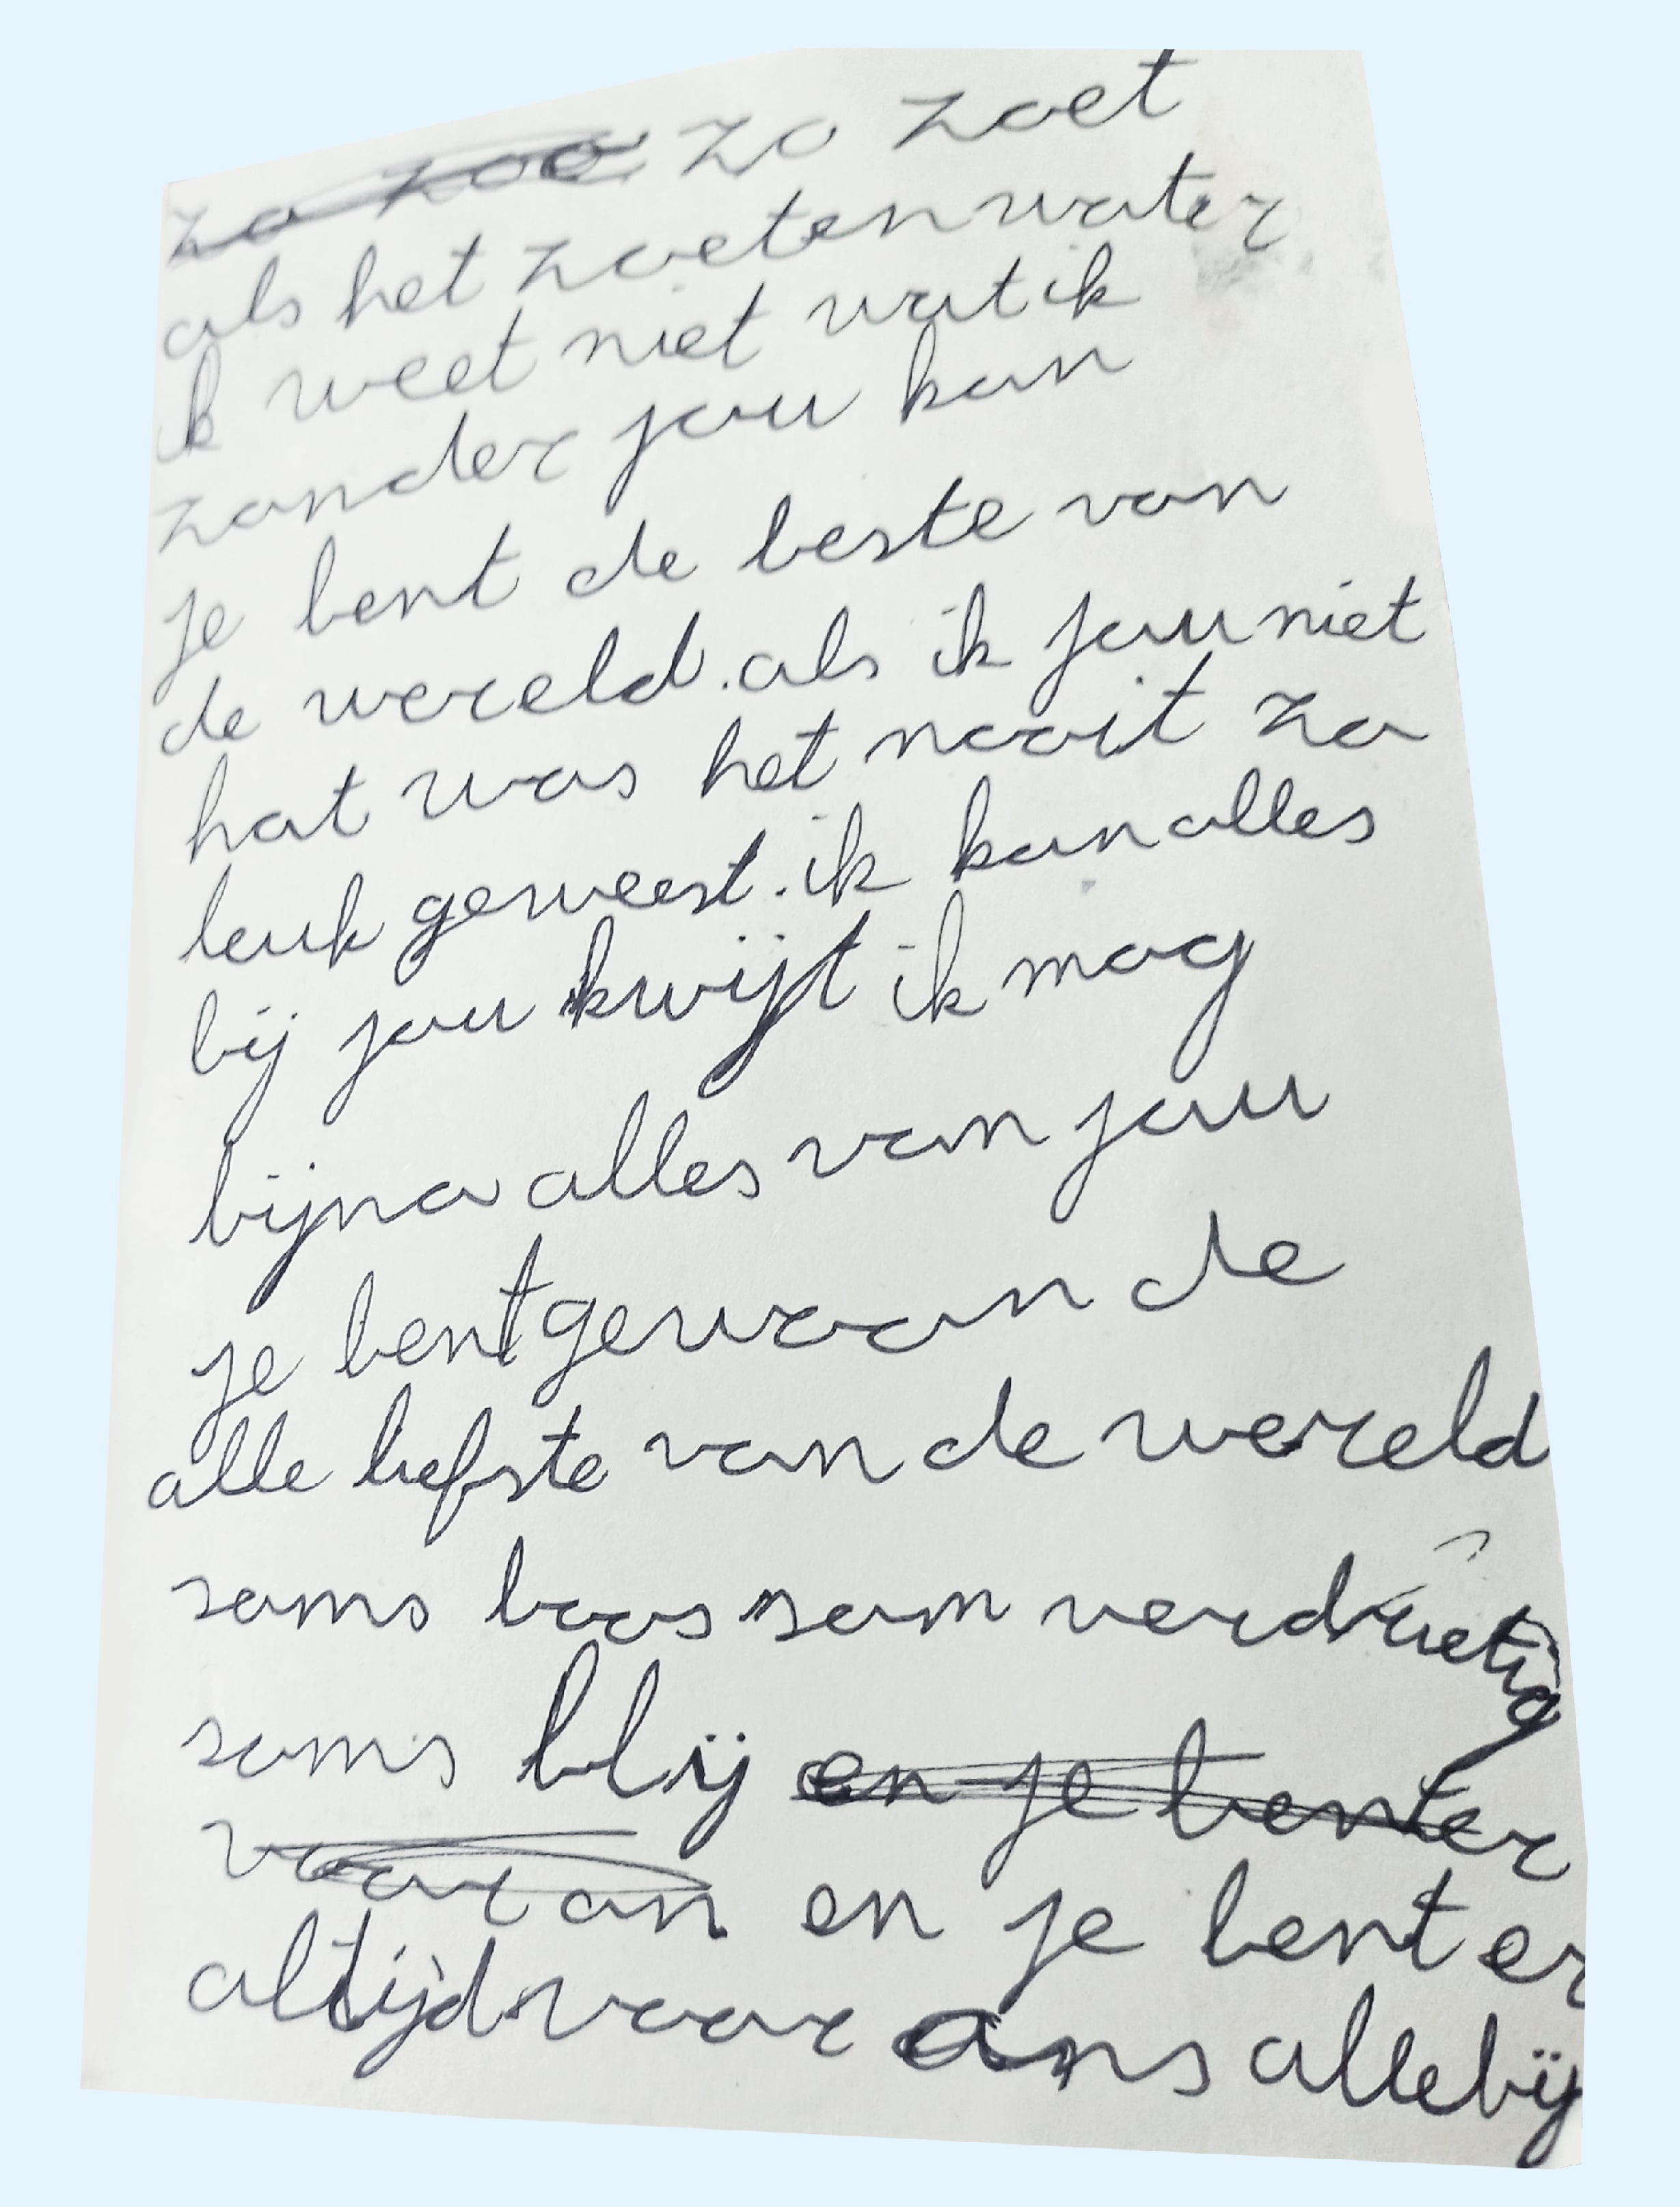 zo zoe zo zoet
als het zoeten water
ik weet niet wat ik
zonder jou kan
je bent de beste van
de wereld. als ik jou niet
hat was het nooit zo
leuk geweest. ik kan alles
bij jou kwijt ik mag
bijna alles van jou
je bent gewoon de
alle liefste van de wereld
soms boos som verdrietig
soms blij en je bent er
voor on en je bent er
altijd voor ons allebij